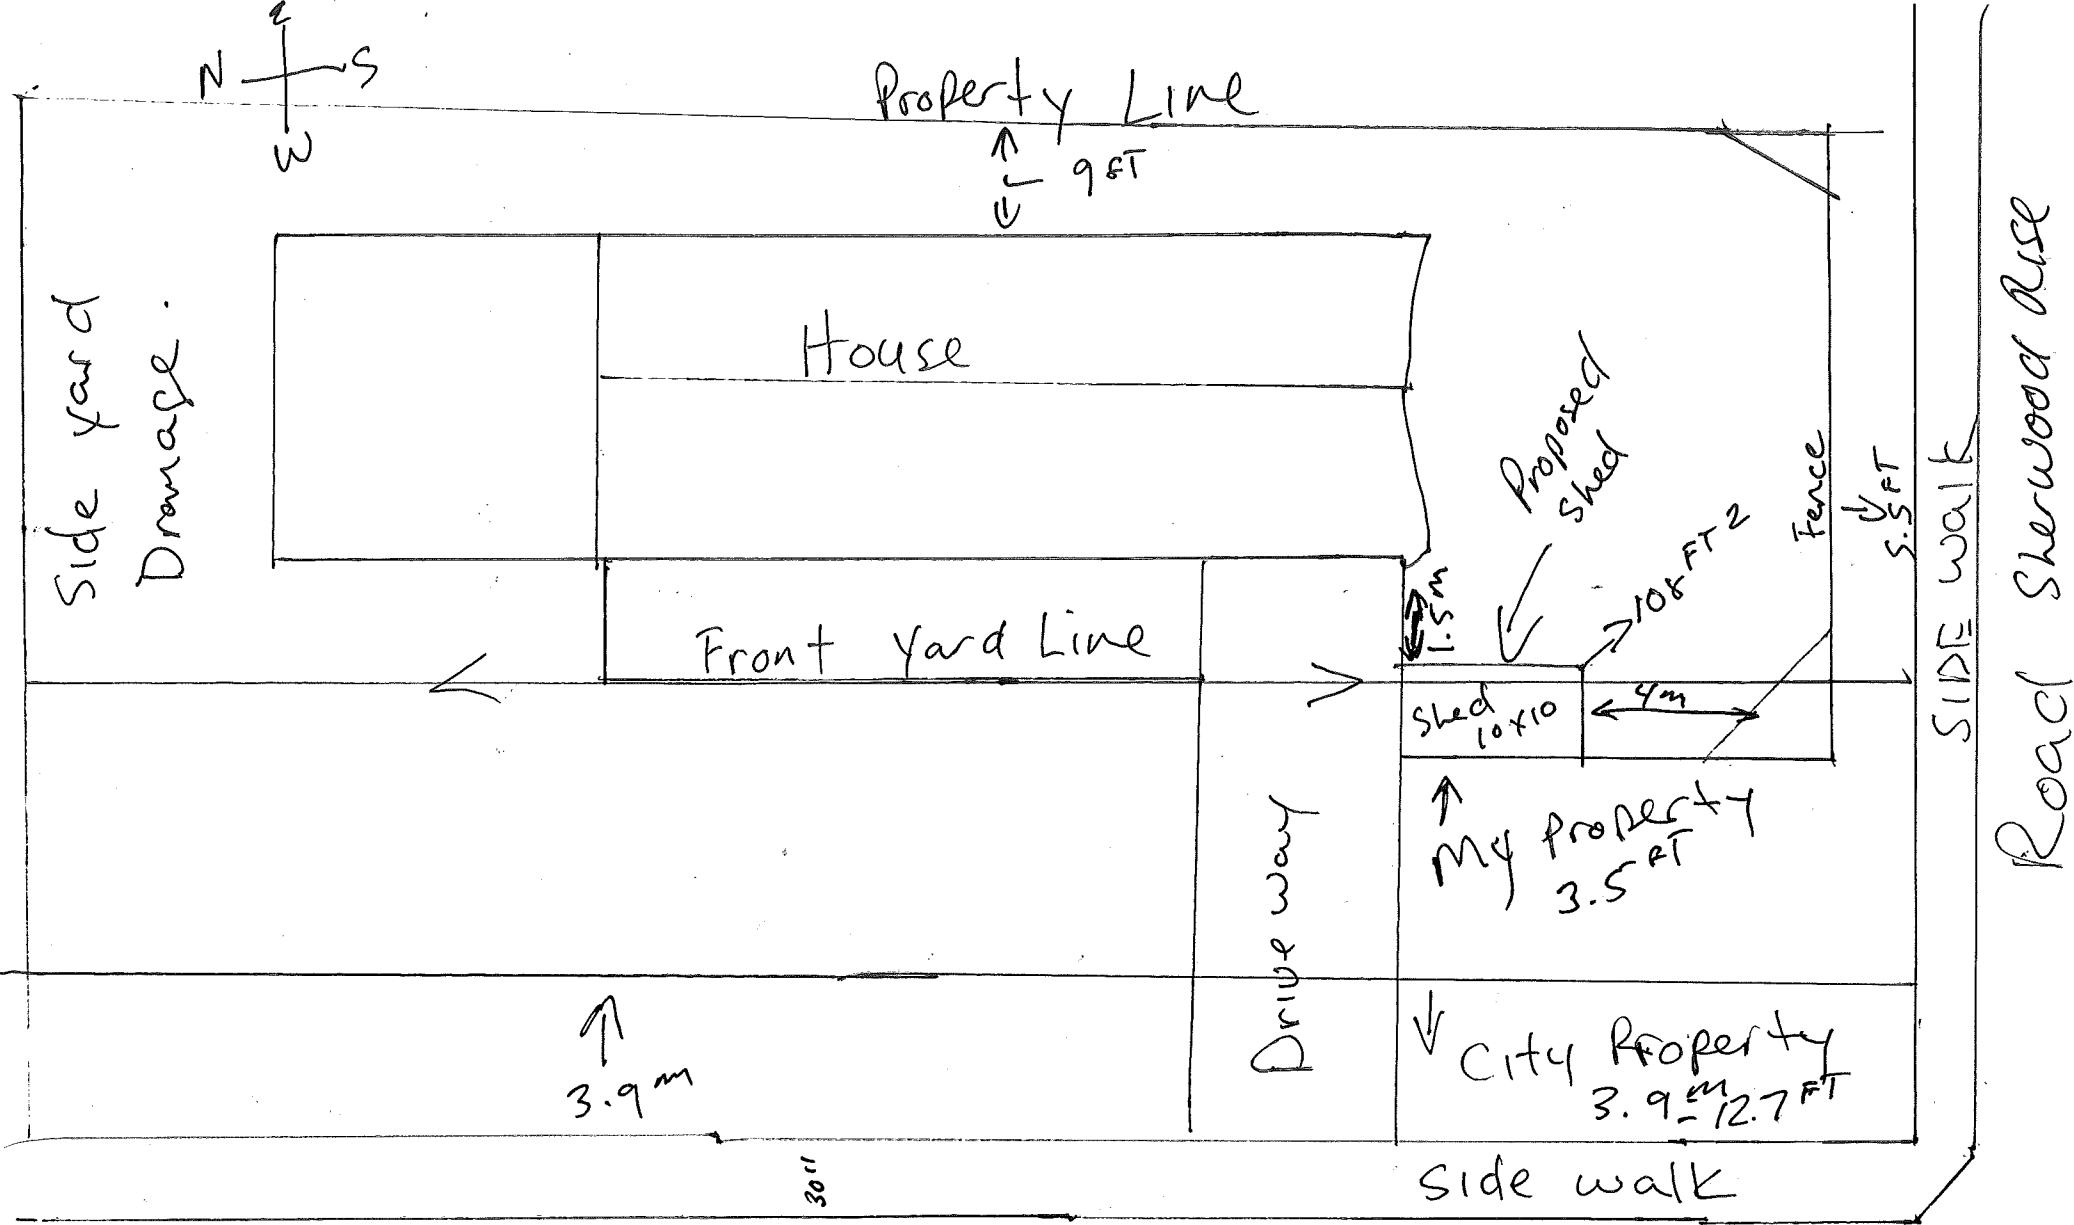 E
N
S
W
Property Line
9 FT
Side yard
Dranage.
House
Proposed
Shed
108 FT2
Fence
5.5 FT
SIDE walk
Road Sherwood Rise
1.5m
Front Yard Line
Shed
10x10
4m
My Property
3.5 FT
Drive way
3.9m
City Property
3.9m - 12.7 FT
30"
Side walk